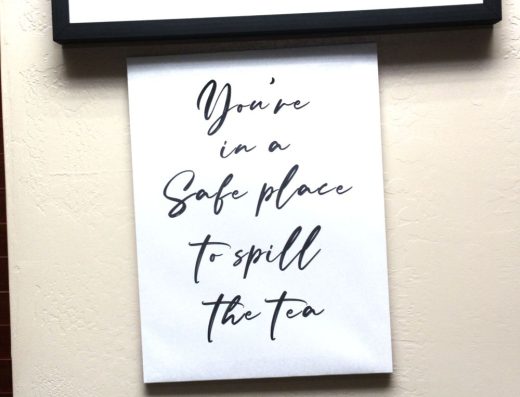 You're
in a
Safe place
to spill
the tea